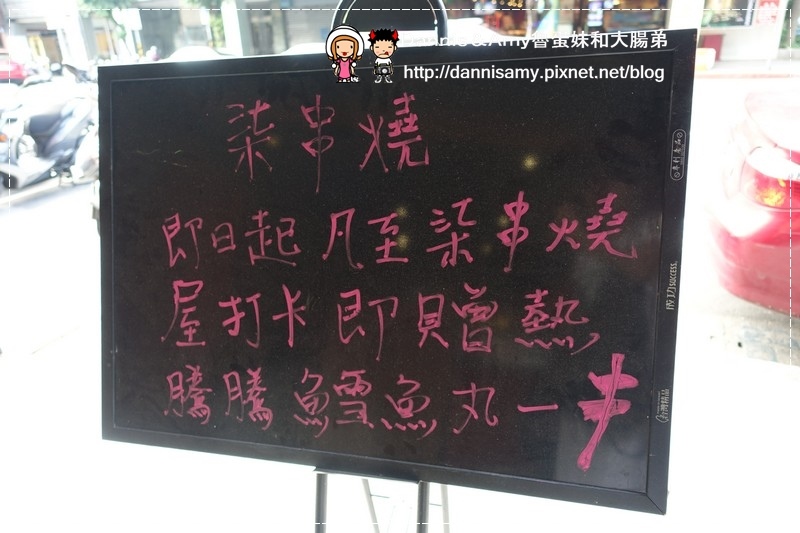 Amy魯蛋妹和大腸弟
http://dannisamy.pixnet.net/blog
柒串燒
即日起 凡至柒串燒
屋打卡即贈熱
騰騰鱈魚丸一串
成功SUCCESS
台灣精品